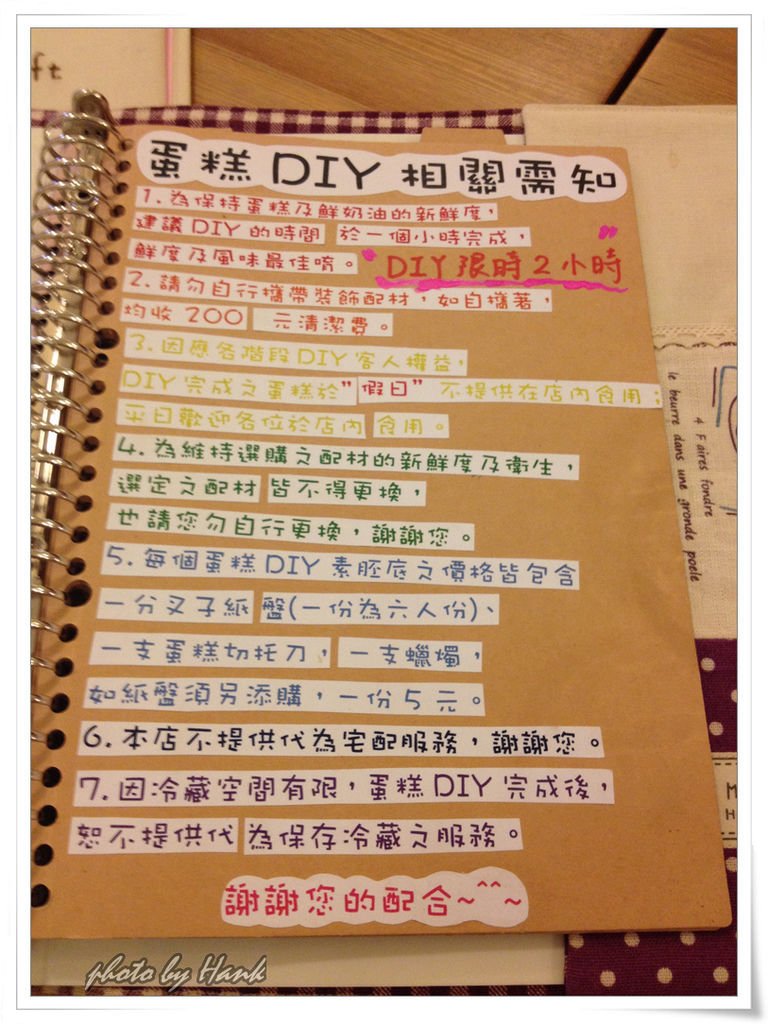 ft
蛋糕 DIY 相關需知
1. 為保持蛋糕及鮮奶油的新鮮度，
建議 DIY 的時間 於一個小時完成，
鮮度及風味最佳唷。
"DIY 限時 2 小時"
2. 請勿自行攜帶裝飾配材，如自攜著，
均收 200 元清潔費。
3. 因應各階段 DIY 客人權益，
DIY 完成之蛋糕於"假日" 不提供在店內食用；
平日歡迎各位於店內 食用。
4. 為維持選購之配材的新鮮度及衛生，
選定之配材 皆不得更換，
也請您勿自行更換，謝謝您。
5. 每個蛋糕 DIY 素胚底之價格皆包含
一分叉子紙 盤(一份為六人份)、
一支蛋糕切托刀，一支蠟燭，
如紙盤須另添購，一份 5 元。
6. 本店不提供代為宅配服務，謝謝您。
7. 因冷藏空間有限，蛋糕 DIY 完成後，
恕不提供代 為保存冷藏之服務。
謝謝您的配合~^^~
4 Faires fondre
le beurre dans une gronde poele
M
H
photo by Hank